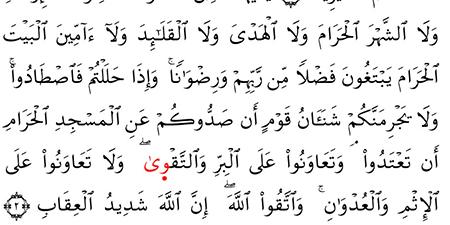 وَلَا ٱلشَّهْرَ ٱلْحَرَامَ وَلَا ٱلْهَدْىَ وَلَا ٱلْقَلَٰٓئِدَ وَلَآ ءَآمِّينَ ٱلْبَيْتَ
ٱلْحَرَامَ يَبْتَغُونَ فَضْلًا مِّن رَّبِّهِمْ وَرِضْوَٰنًا ۚ وَإِذَا حَلَلْتُمْ فَٱصْطَادُوا۟ ۚ
وَلَا يَجْرِمَنَّكُمْ شَنَـَٔانُ قَوْمٍ أَن صَدُّوكُمْ عَنِ ٱلْمَسْجِدِ ٱلْحَرَامِ
أَن تَعْتَدُوا۟ ۘ وَتَعَاوَنُوا۟ عَلَى ٱلْبِرِّ وَٱلتَّقْوَىٰ ۖ وَلَا تَعَاوَنُوا۟ عَلَى
ٱلْإِثْمِ وَٱلْعُدْوَٰنِ ۚ وَٱتَّقُوا۟ ٱللَّهَ ۖ إِنَّ ٱللَّهَ شَدِيدُ ٱلْعِقَابِ ﴿٢﴾